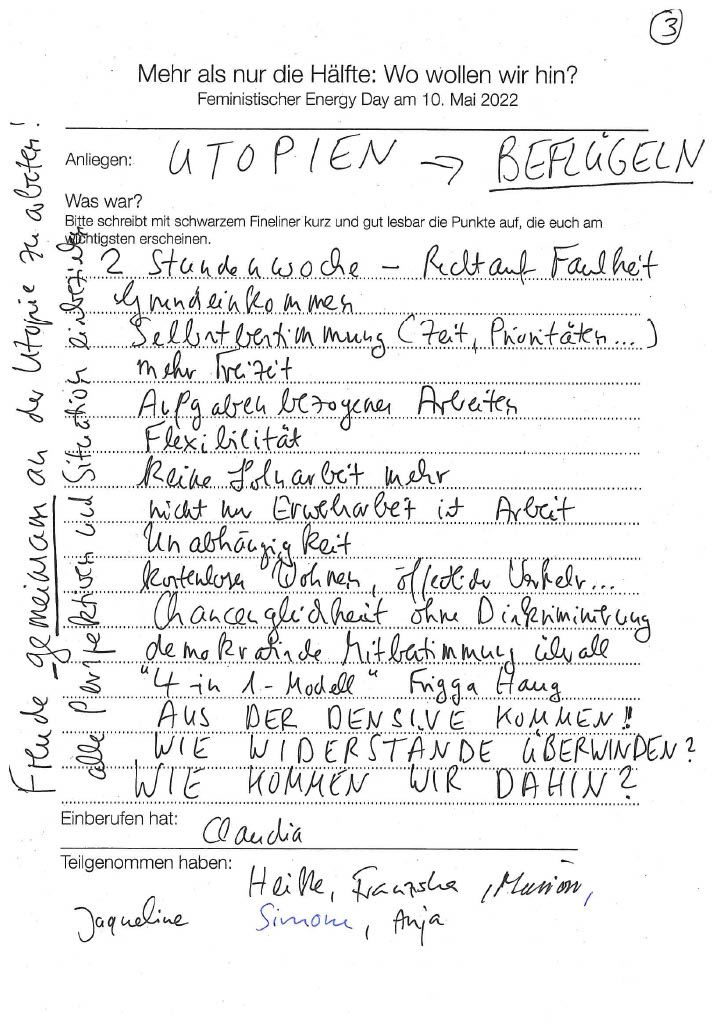 3
Mehr als nur die Hälfte: Wo wollen wir hin?
Feministischer Energy Day am 10. Mai 2022
Anliegen: UTOPIEN → BEFLÜGELN
Was war?
Bitte schreibt mit schwarzem Fineliner kurz und gut lesbar die Punkte auf, die euch am
wichtigsten erscheinen.
2 Stundenwoche – Recht auf Faulheit
Grundeinkommen
Selbstbestimmung (Zeit, Prioritäten...)
mehr Freizeit
Aufgabenbezogenes Arbeiten
Flexibilität
Keine Lohnarbeit mehr
nicht nur Erwerbarbeit ist Arbeit
Unabhängigkeit
kostenloses Wohnen, öffentlicher Verkehr...
Chancengleichheit ohne Diskriminierung
demokratische Mitbestimmung überall
"4 in 1 - Modell" Frigga Haug
AUS DER DENSIVE KOMMEN!
WIE WIDERSTÄNDE ÜBERWINDEN?
WIE KOMMEN WIR DAHIN?
Freude gemeinsam an der Utopie zu arbeiten!
alle Perspektiven und Situation einbeziehen
Einberufen hat: Claudia
Teilgenommen haben: Heike, Franziska, Marion,
Jaqueline Simone, Anja